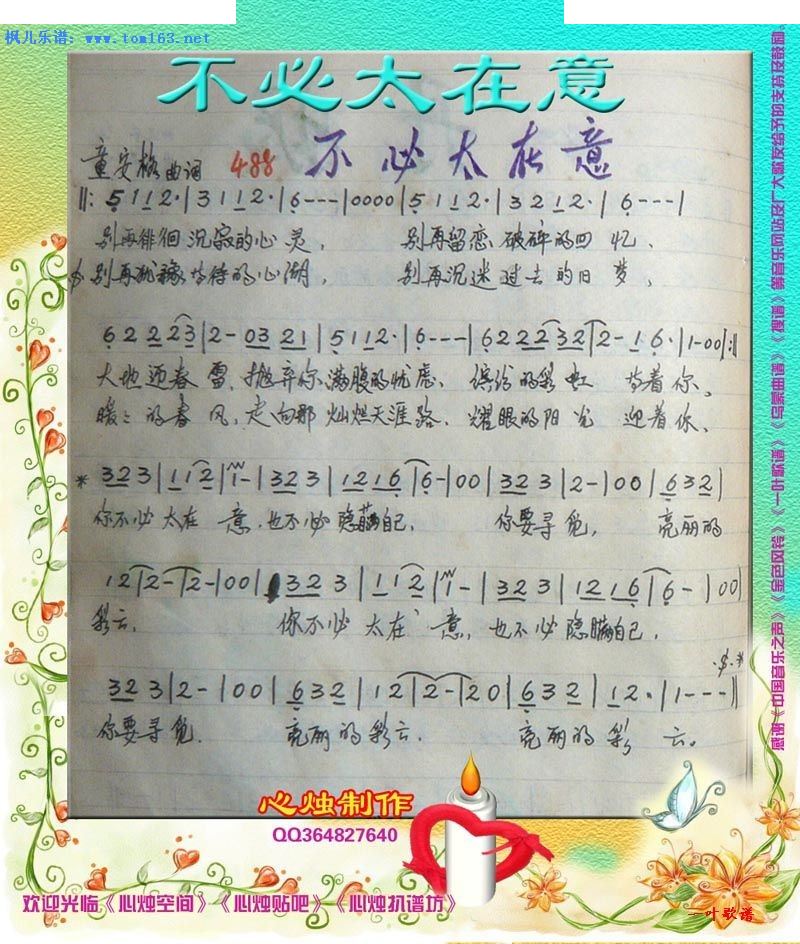 枫儿乐谱：www.tom163.net
不必太在意
童安格曲词 488 不必太在意
‖: 5 1 1 2· | 3 1 1 2· | 6 - - - | 0 0 0 0 | 5 1 1 2· | 3 2 1 2· | 6 - - - |
别再徘徊沉寂的心灵， 别再留恋破碎的回忆、
别再犹豫等待的心湖， 别再沉迷过去的旧梦，
6 2 2 2 2 3 | 2 - 0 3 2 1 | 5 1 1 2· | 6 - - - | 6 2 2 2 3 2 | 2 - 1 6· | 1 - 0 0 :‖
大地迎春雷、抛弃你满腹的忧虑、缤纷的彩虹 等着你、
暖暖的春风，走向那灿烂天涯路、耀眼的阳光 迎着你、
* 3 2 3 | 1 1 2 | 1 - | 3 2 3 | 1 2 1 6 | 6 - | 0 0 | 3 2 3 | 2 - | 0 0 | 6 3 2 |
你不必太在意，也不必隐瞒自己， 你要寻觅， 亮丽的
1 2 | 2 - | 2 - | 0 0 | 3 2 3 | 1 1 2 | 1 - | 3 2 3 | 1 2 1 6 | 6 - | 0 0 |
彩云、 你不必太在意，也不必隐瞒自己，
3 2 3 | 2 - | 0 0 | 6 3 2 | 1 2 | 2 - | 2 0 | 6 3 2 | 1 2· | 1 - - - ‖
你要寻觅、 亮丽的彩云、 亮丽的彩云。
心烛制作
QQ364827640
欢迎光临《心烛空间》《心烛贴吧》《心烛扒谱坊》
一叶歌谱
感谢《中国音乐之声》《金色风铃》《一叶歌谱》《乌蒙曲谱》《搜谱》等音乐网站及广大歌友给予的支持及鼓励